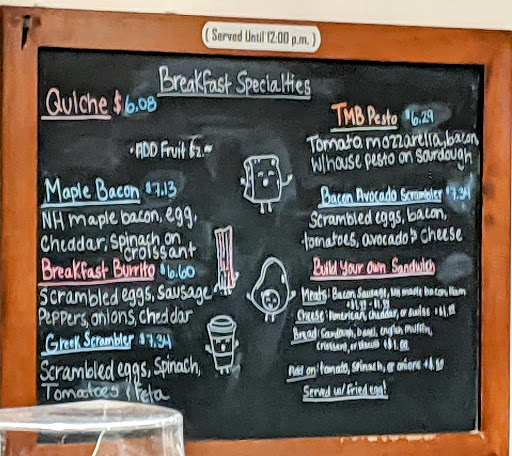 ( Served Until 12:00 p.m. )
Breakfast Specialties
Quiche $6.08
• ADD Fruit $2.00
Maple Bacon $7.13
NH maple bacon, egg,
cheddar, spinach on
croissant
Breakfast Burrito $6.60
Scrambled eggs, Sausage
Peppers, onions, cheddar
Greek Scrambler $7.34
Scrambled eggs, Spinach,
Tomatoes & feta
TMB Pesto $6.29
Tomato, mozzarella, bacon,
w/house pesto on sourdough
Bacon Avocado Scrambler $7.34
Scrambled eggs, bacon,
tomatoes, avocado & cheese
Build your own Sandwich
Meats: Bacon, Sausage, NH maple bacon, Ham
Cheese: American, cheddar, or swiss
Bread: Sourdough, bagel, english muffin,
Croissant, or
Add on: tomato, spinach, or onions
Served w/ fried egg!